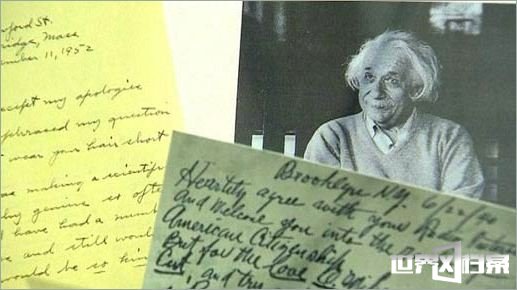 ford St.
ridge, Mass
ember 11, 1952
ccept my apologies
phrased my question
wear your hair short
making a scientific
genius so often
have had a num
and still would
ould be so him
Brooklyn N.Y. 6/22/40
Heartily agree with your Radio
And welcome you into the
American Citizenship
But for the Love O' Mike
Cut, and tri
世界X档案